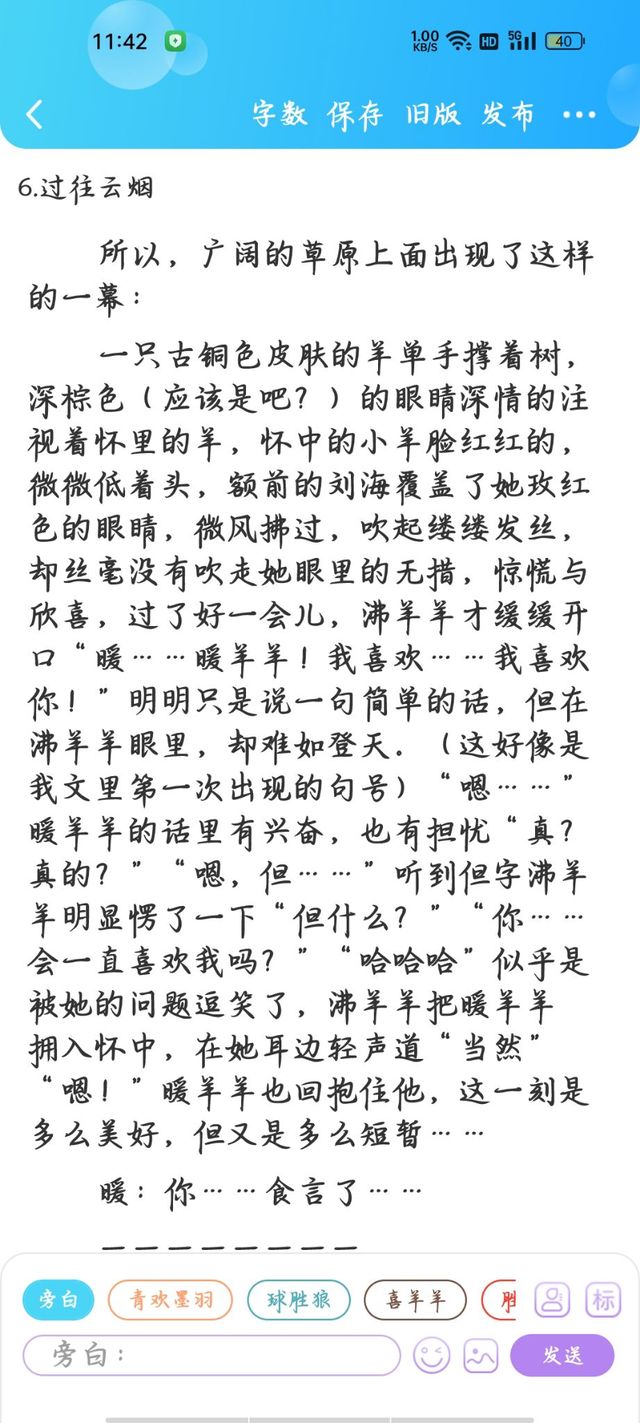 11:42
1.00
KB/S
HD
5G
40
字数 保存 旧版 发布
6.过往云烟
所以，广阔的草原上面出现了这样
的一幕：
一只古铜色皮肤的羊单手撑着树，
深棕色（应该是吧？）的眼睛深情的注
视着怀里的羊，怀中的小羊脸红红的，
微微低着头，额前的刘海覆盖了她玫红
色的眼睛，微风拂过，吹起缕缕发丝，
却丝毫没有吹走她眼里的无措，惊慌与
欣喜，过了好一会儿，沸羊羊才缓缓开
口“暖……暖羊羊！我喜欢……我喜欢
你！”明明只是说一句简单的话，但在
沸羊羊眼里，却难如登天．（这好像是
我文里第一次出现的句号）“嗯……”
暖羊羊的话里有兴奋，也有担忧“真？
真的？”“嗯，但……”听到但字沸羊
羊明显愣了一下“但什么？”“你……
会一直喜欢我吗？”“哈哈哈”似乎是
被她的问题逗笑了，沸羊羊把暖羊羊
拥入怀中，在她耳边轻声道“当然”
“嗯！”暖羊羊也回抱住他，这一刻是
多么美好，但又是多么短暂……
暖：你……食言了……
————————
旁白 青欢墨羽 球胜狼 喜羊羊 标
旁白： 发送